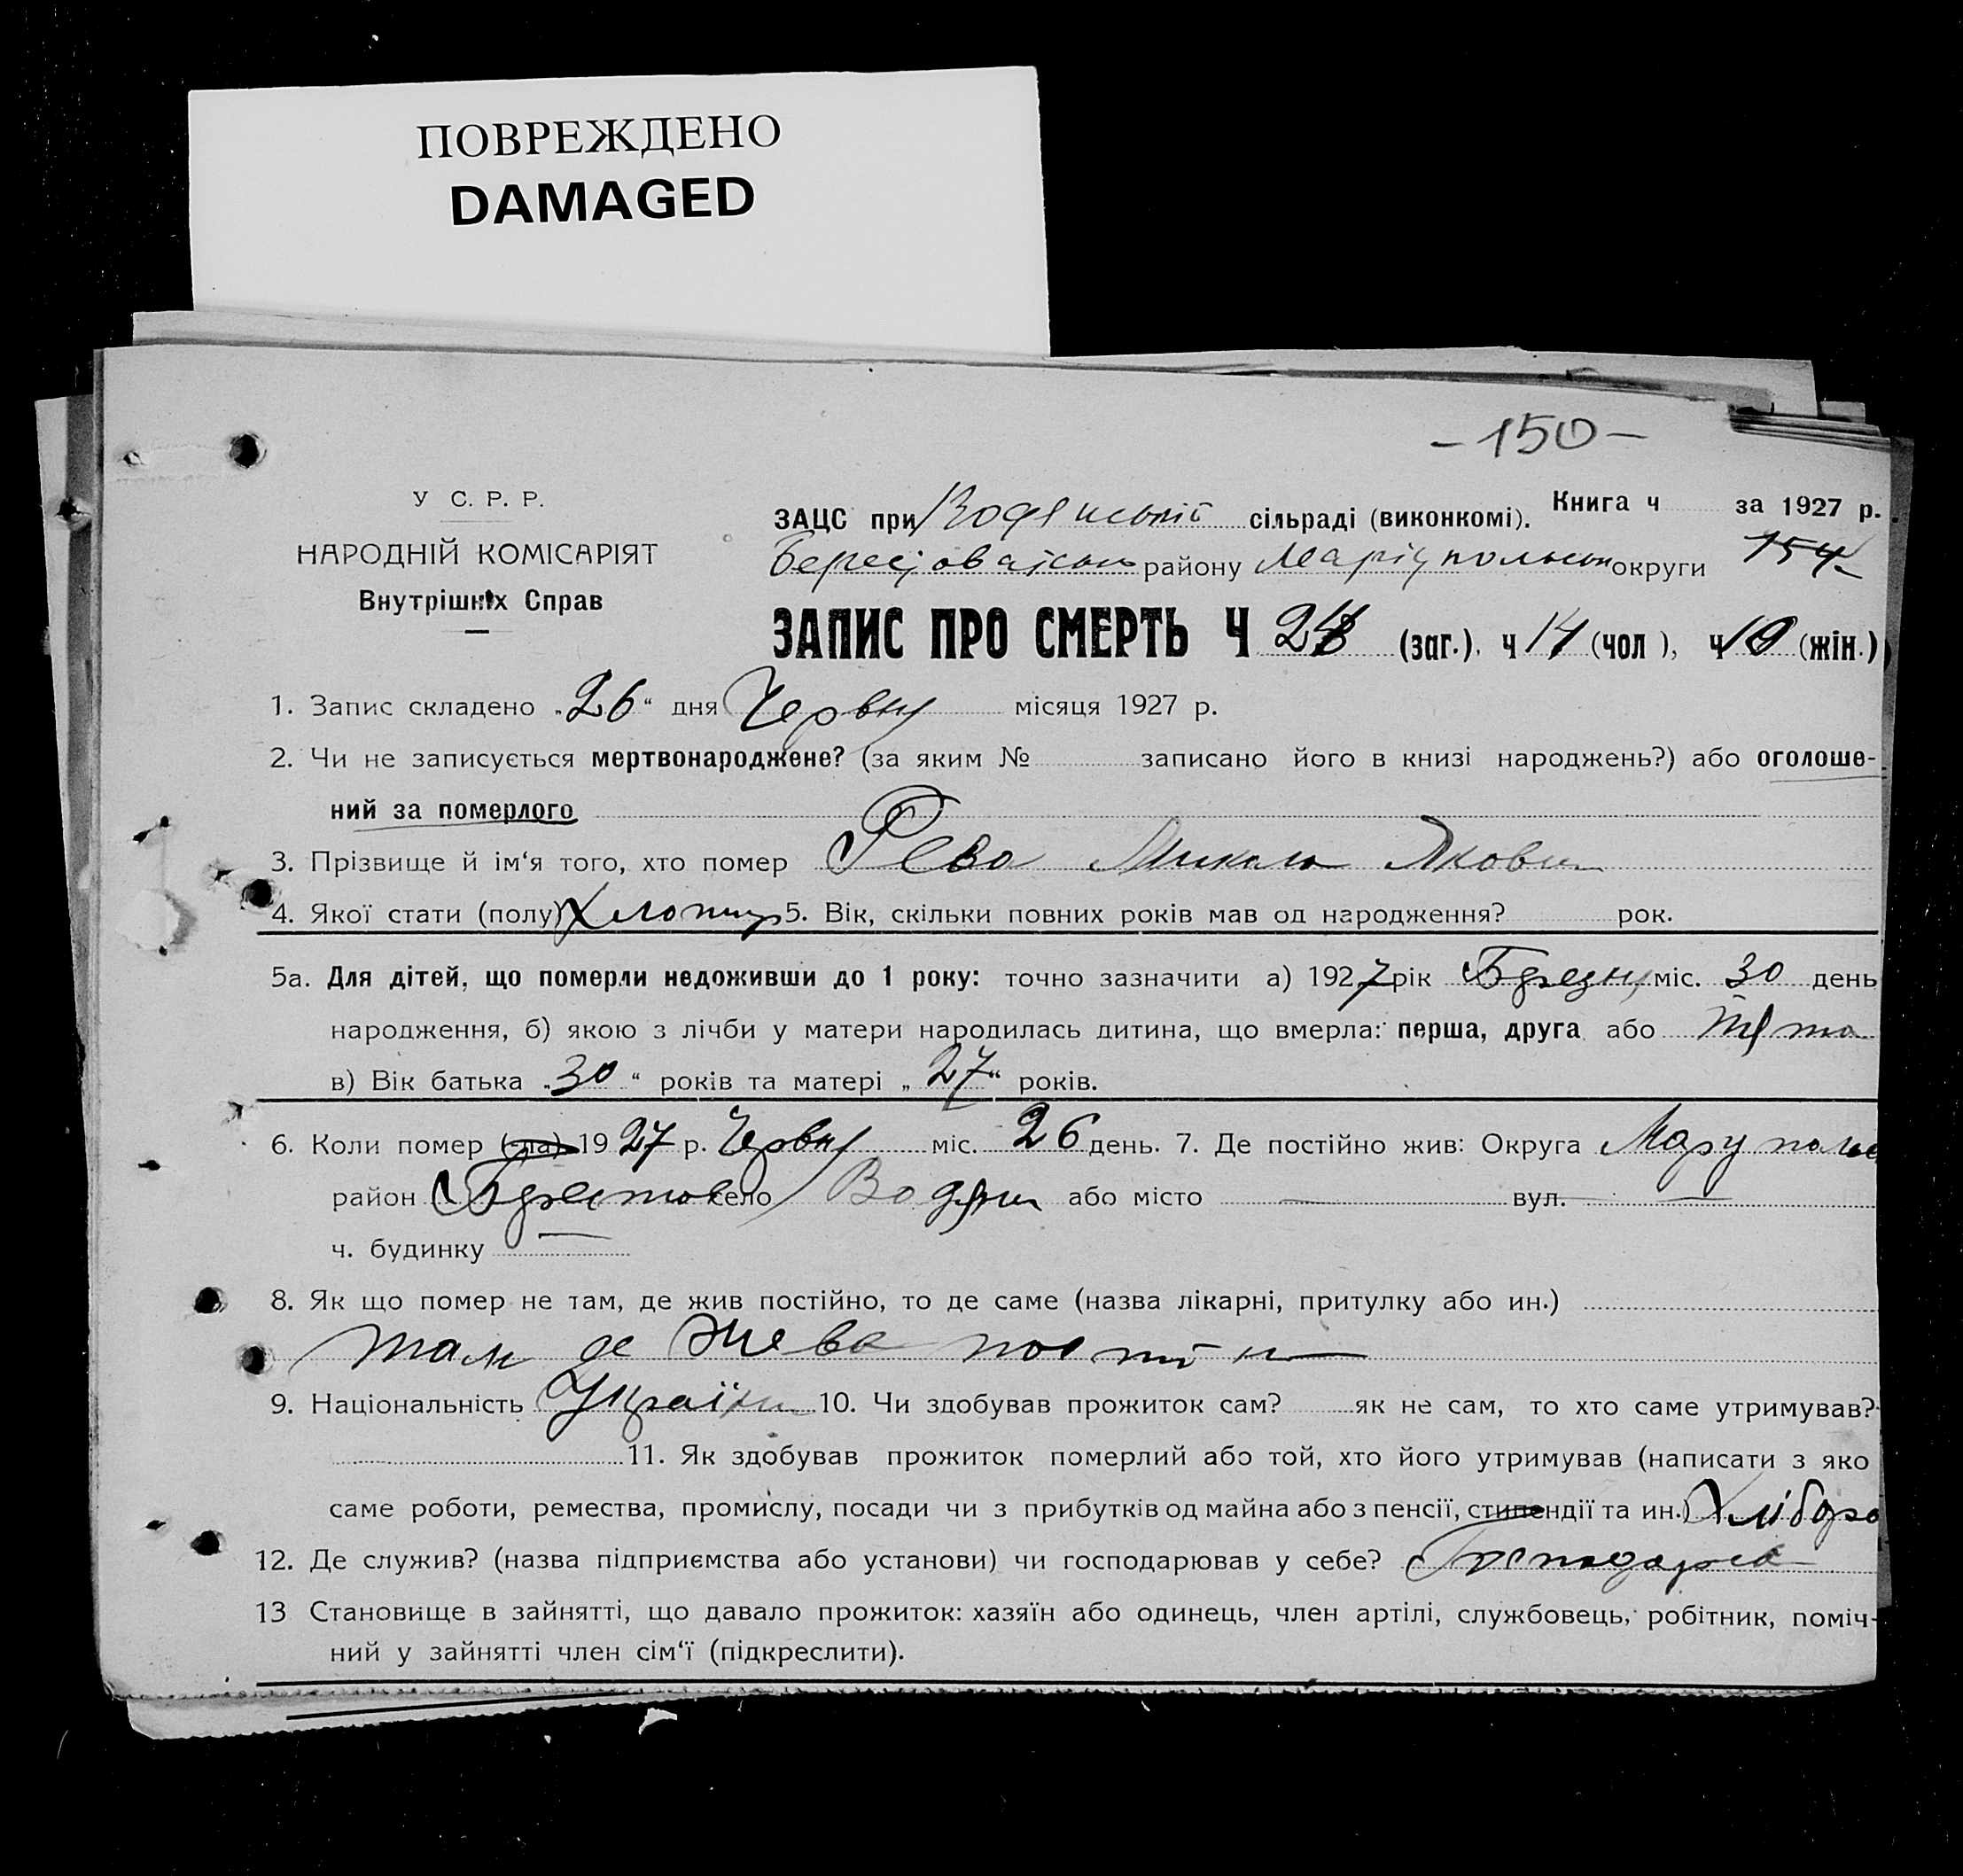 ПОВРЕЖДЕНО
DAMAGED
-150-
У С. Р. Р.
НАРОДНІЙ КОМІСАРІЯТ
Внутрішніх Справ
ЗАЦС при Водянській сільраді (виконкомі). Книга ч за 1927 р.
району округи 154
ЗАПИС ПРО СМЕРТЬ Ч 24 (заг.). ч 14 (чол ), ч 10 (жін.)
1. Запис складено „26“ дня Червня місяця 1927 р.
2. Чи не записується мертвонароджене? (за яким № записано його в книзі народжень?) або оголоше-
ний за померлого
3. Прізвище й ім‘я того, хто помер Рева Микола Якович
4. Якої стати (полу) Хлопець 5. Вік, скільки повних років мав од народження? рок.
5а. Для дітей, що померли недоживши до 1 року: точно зазначити а) 1927 рік Березня міс. 30 день
народження, б) якою з лічби у матери народилась дитина, що вмерла: перша, друга або П'ята
в) Вік батька „30“ років та матері „27“ років.
6. Коли помер (ла) 1927 р. Червня міс. 26 день. 7. Де постійно жив: Округа
район село або місто — вул. —
ч. будинку —
8. Як що помер не там, де жив постійно, то де саме (назва лікарні, притулку або ин.)
там де жева
9. Національність Україн 10. Чи здобував прожиток сам? як не сам, то хто саме утримував?
11. Як здобував прожиток померлий або той, хто його утримував (написати з яко
саме роботи, ремества, промислу, посади чи з прибутків од майна або з пенсії, стипендії та ин.) Хлібора
12. Де служив? (назва підприємства або установи) чи господарював у себе?
13 Становище в зайнятті, що давало прожиток: хазяїн або одинець, член артілі, службовець, робітник, поміч-
ний у зайнятті член сім‘ї (підкреслити).